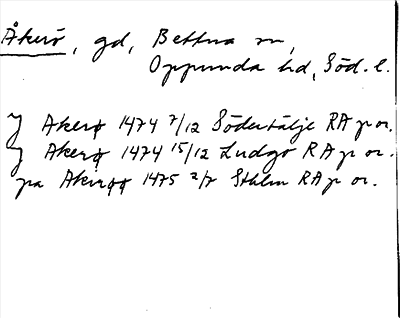 Åkerö, gd, Bettna sn,
Oppunda hd, Söd. l.
J Akerø 1474 7/12 Södertälje RA p or.
J Akerø 1474 15/12 Ludgo RA p or.
pa Akirøø 1475 2/7 Sthlm RA p or.